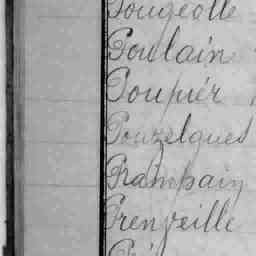 Pougeolle
Poulain
Poupier
Pouzelgues
Prampain
Prenveille